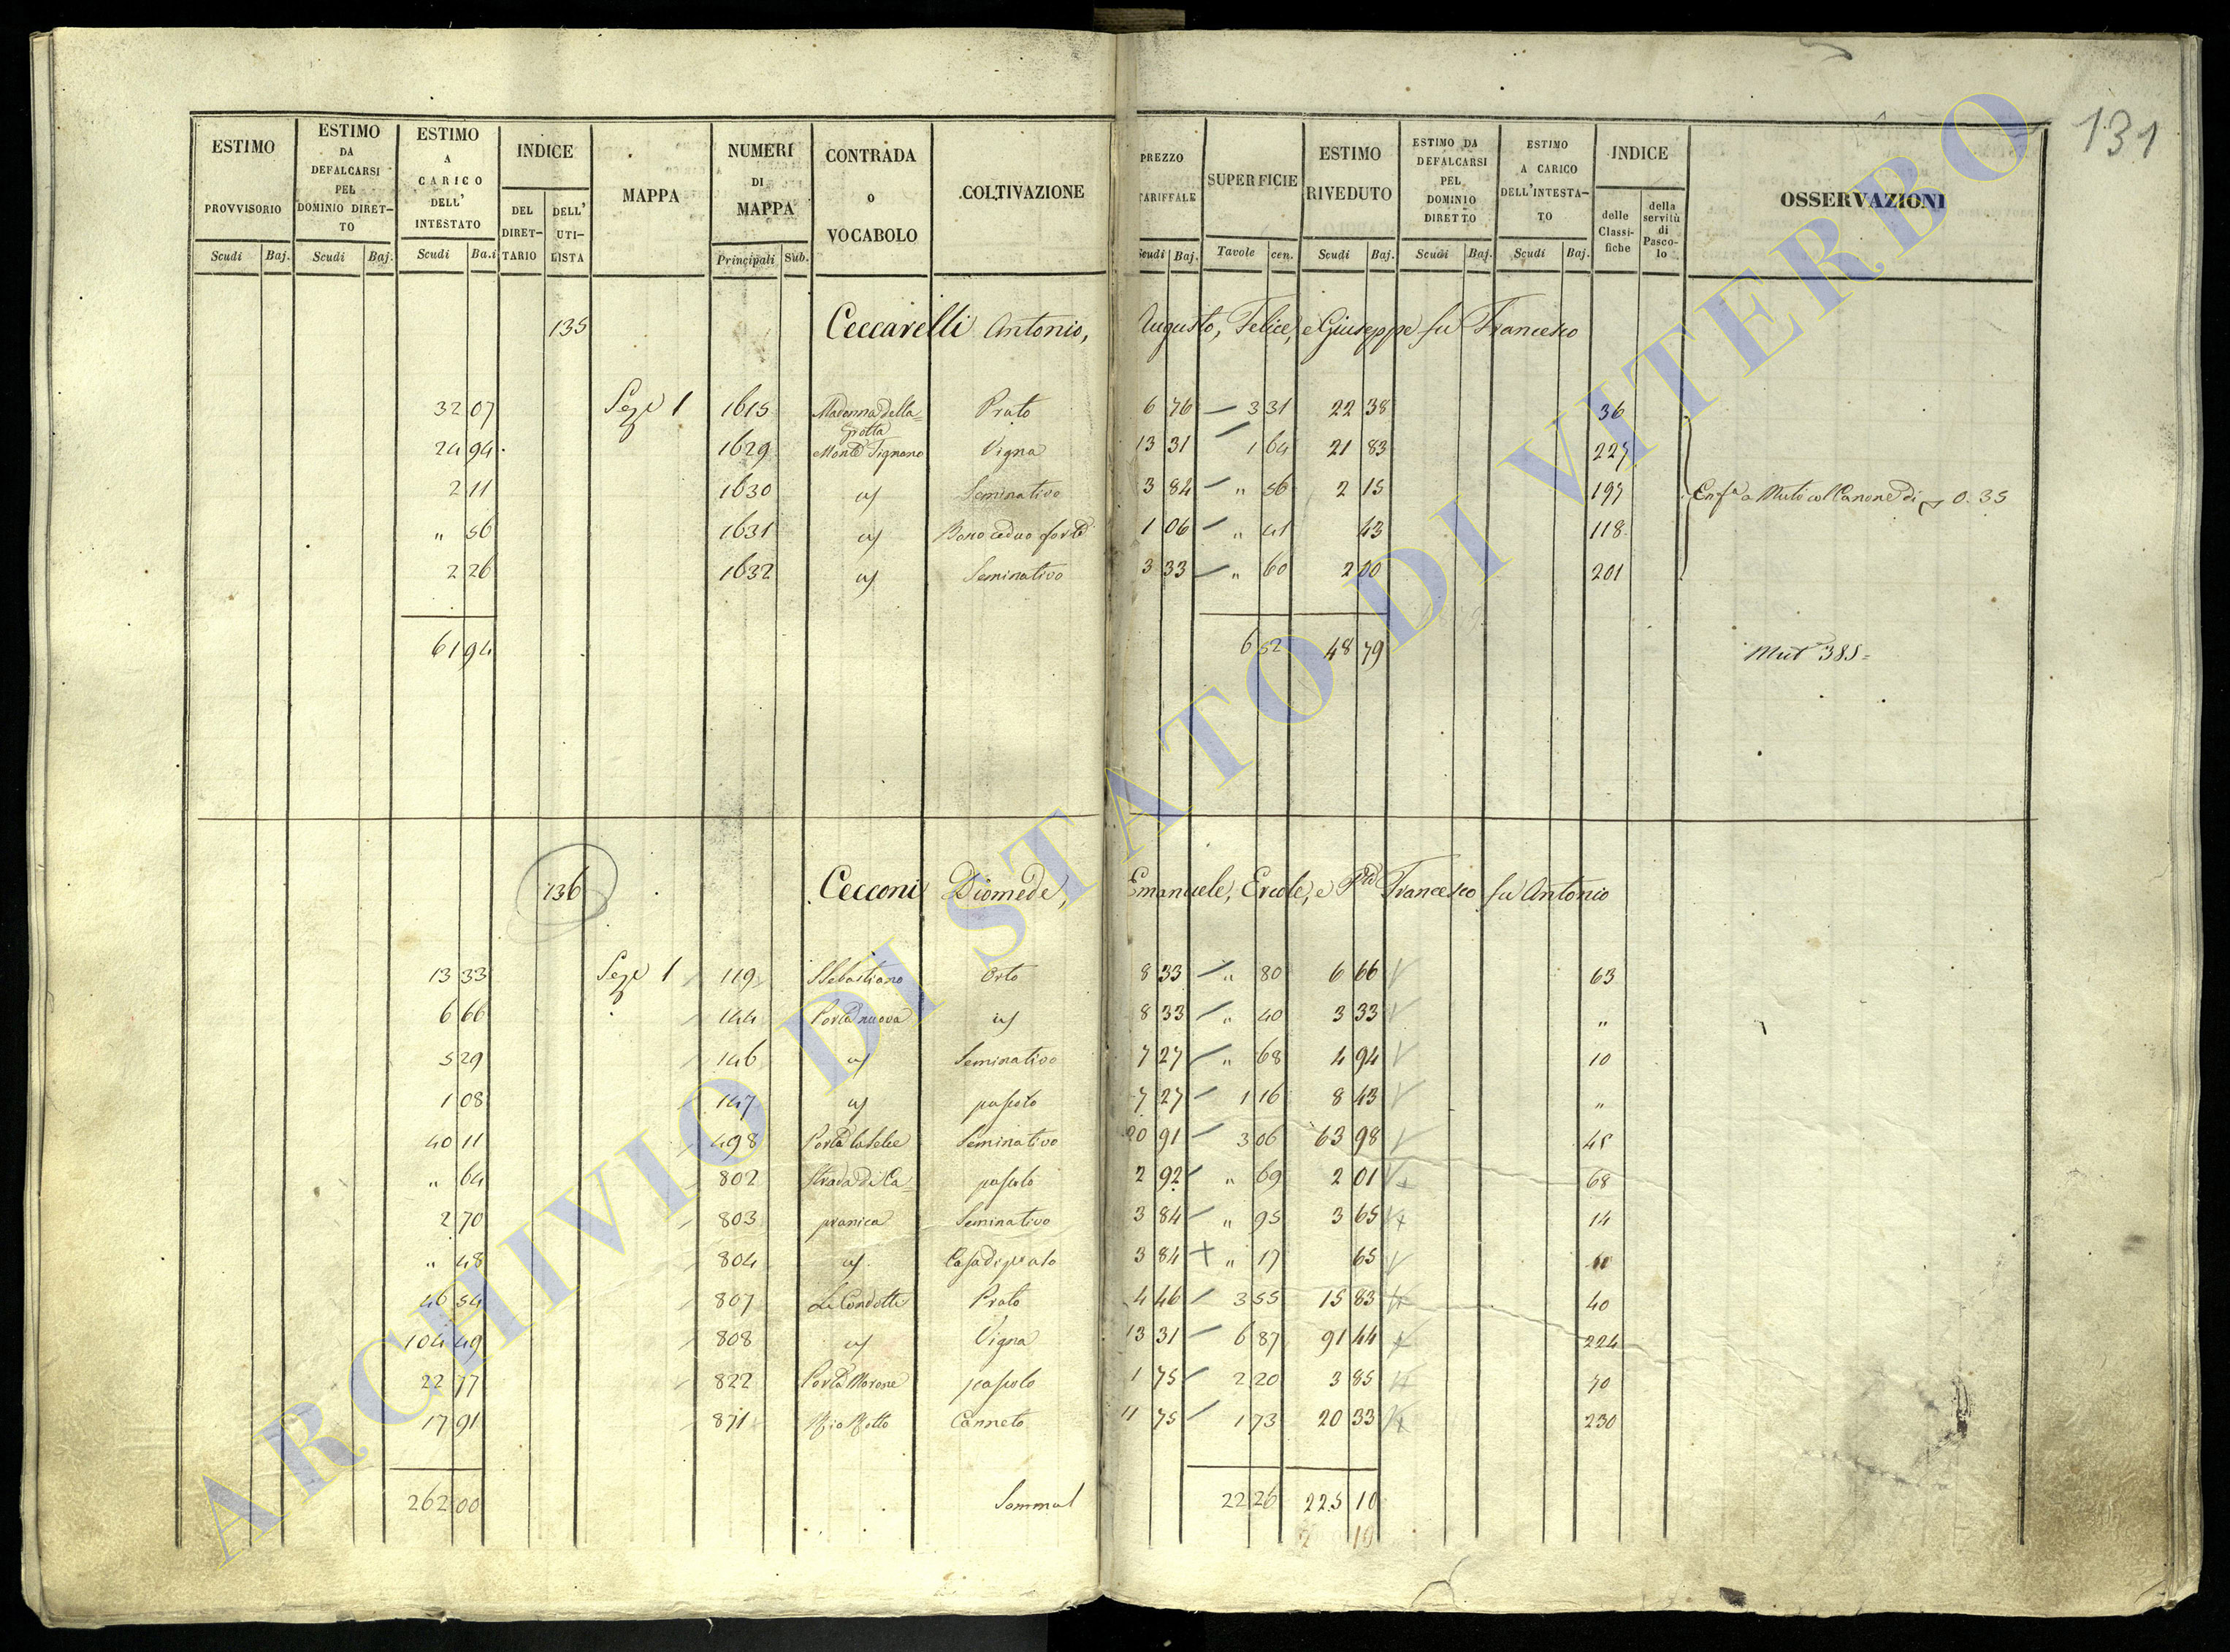 131
ESTIMO PROVVISORIO Scudi Baj. | ESTIMO DA DEFALCARSI PEL DOMINIO DIRET-TO Scudi Baj. | ESTIMO A CARICO DELL' INTESTATO Scudi Ba.i | INDICE DEL DIRET-TARIO DELL' UTI-LISTA | MAPPA | NUMERI DI MAPPA Principali Sub. | CONTRADA o VOCABOLO | COLTIVAZIONE | PREZZO TARIFFALE Scudi Baj. | SUPERFICIE Tavole cen. | ESTIMO RIVEDUTO Scudi Baj. | ESTIMO DA DEFALCARSI PEL DOMINIO DIRETTO Scudi Baj. | ESTIMO A CARICO DELL'INTESTA-TO Scudi Baj. | INDICE delle Classi-fiche della servitù di Pasco-lo | OSSERVAZIONI
135 Ceccarelli Antonio, Augusto, Felice, e Giuseppe fu Francesco
32 07 Sez.e 1 1615 Madonna della Prato 6 76 3 31 22 38 36
Grotta
24 94 1629 Monte Tignano Vigna 13 31 1 64 21 83 227
2 11 1630 Seminativo 3 84 " 56 2 15 197 a Muto col Canone di 0.35
" 56 1631 ceduo forte 1 06 " 41 43 118
2 26 1632 Seminativo 3 33 " 60 2 00 201
61 94 6 52 48 79 Mut 385
136 Cecconi Diomede, Emanuele, Ercole, e Francesco fu Antonio
13 33 Sez.e 1 119 S Sebastiano Orto 8 33 " 80 6 66 63
6 66 144 Porta nuova 8 33 " 40 3 33 "
5 29 146 Seminativo 7 27 " 68 4 94 10
1 08 147 pascolo 7 27 1 16 8 43 "
40 11 498 Seminativo 20 91 3 06 63 98 45
" 64 802 Strada di Ca= pascolo 2 92 " 69 2 01 68
2 70 803 pranica Seminativo 3 84 " 95 3 65 14
" 48 804 3 84 " 17 65
46 54 807 Le Condotte Prato 4 46 3 55 15 83 40
104 49 808 Vigna 13 31 6 87 91 44 224
22 77 822 Porta Morone pascolo 1 75 2 20 3 85 70
17 91 871 Rio Rotto Canneto 11 75 1 73 20 33 230
262 00 22 26 225 10
10
ARCHIVIO DI STATO DI VITERBO